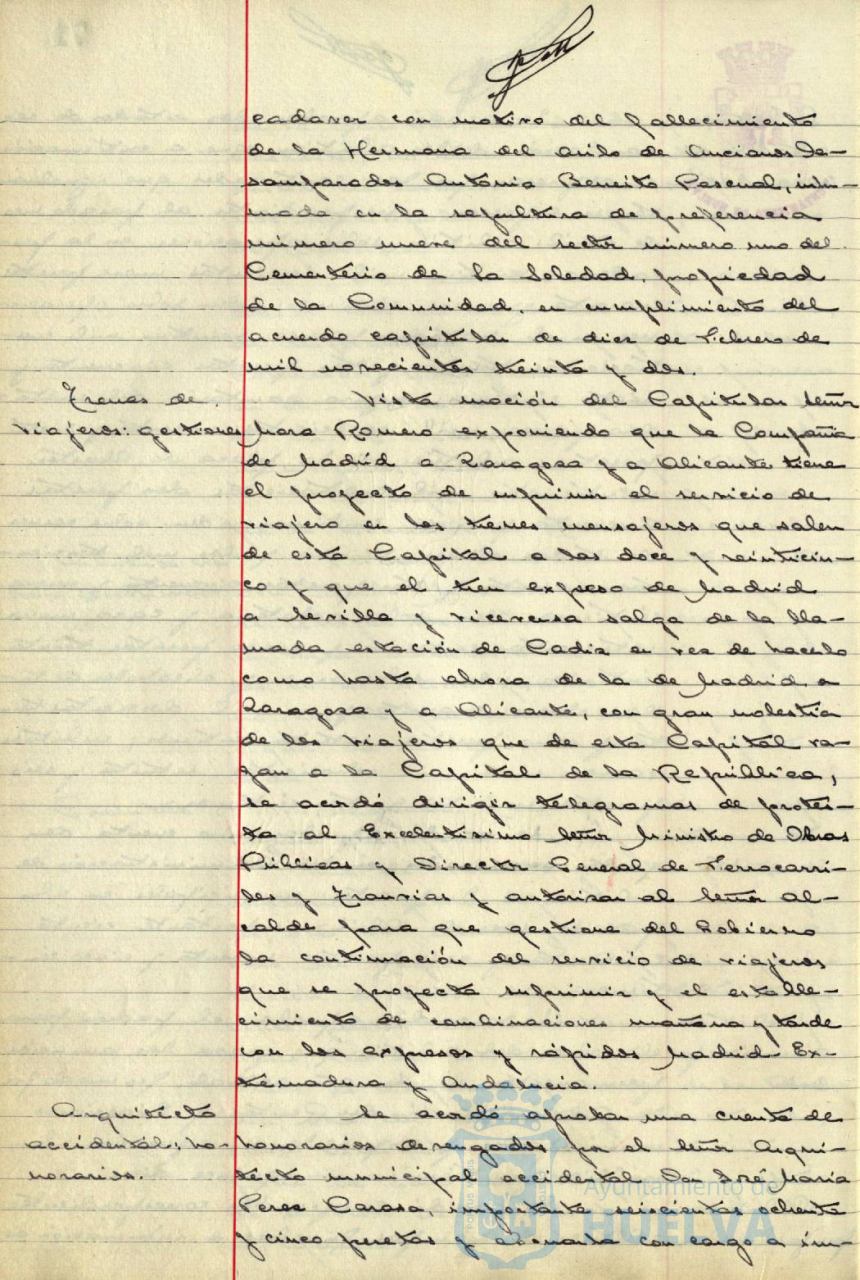 cadaver con motivo del fallecimiento
de la Hermana del asilo de Ancianos De-
samparados Antonia Beneito Pascual, inhu-
mada en la sepultura de preferencia
número nueve del sector número uno del
Cementerio de la Soledad, propiedad
de la Comunidad, en cumplimiento del
acuerdo capitular de diez de Febrero de
mil novecientos treinta y dos.
Trenes de
viajeros: gestiones
Vista moción del Capitular Señor
Mora Romero exponiendo que la Compañía
de Madrid a Zaragoza y a Alicante tiene
el proyecto de suprimir el servicio de
viajero en los trenes mensajeros que salen
de esta Capital a las doce y veinticin-
co y que el tren expreso de Madrid
a Sevilla y viceversa salga de la lla-
mada estación de Cadiz en vez de hacerlo
como hasta ahora de la de Madrid a
Zaragoza y a Alicante, con gran molestia
de los viajeros que de esta Capital va-
yan a la Capital de la República,
se acordó dirigir telegramas de protes-
ta al Excelentisimo Señor Ministro de Obras
Públicas y Director General de Ferrocarri-
les y Tranvias y autorizar al Señor Al-
calde para que gestione del Gobierno
la continuación del servicio de viajeros
que se proyecta suprimir y el estable-
cimiento de combinaciones mañana y tarde
con los expresos y rápidos Madrid-Ex-
tremadura y Andalucia.
Arquitecto
accidental: ho-
norarios.
Se acordó aprobar una cuenta de
honorarios devengados por el Señor Arqui-
tecto municipal accidental Don José Maria
Perez Carasa, importante seiscientas ochenta
y cinco pesetas y abonarla con cargo a im-
Ayuntamiento de
HUELVA